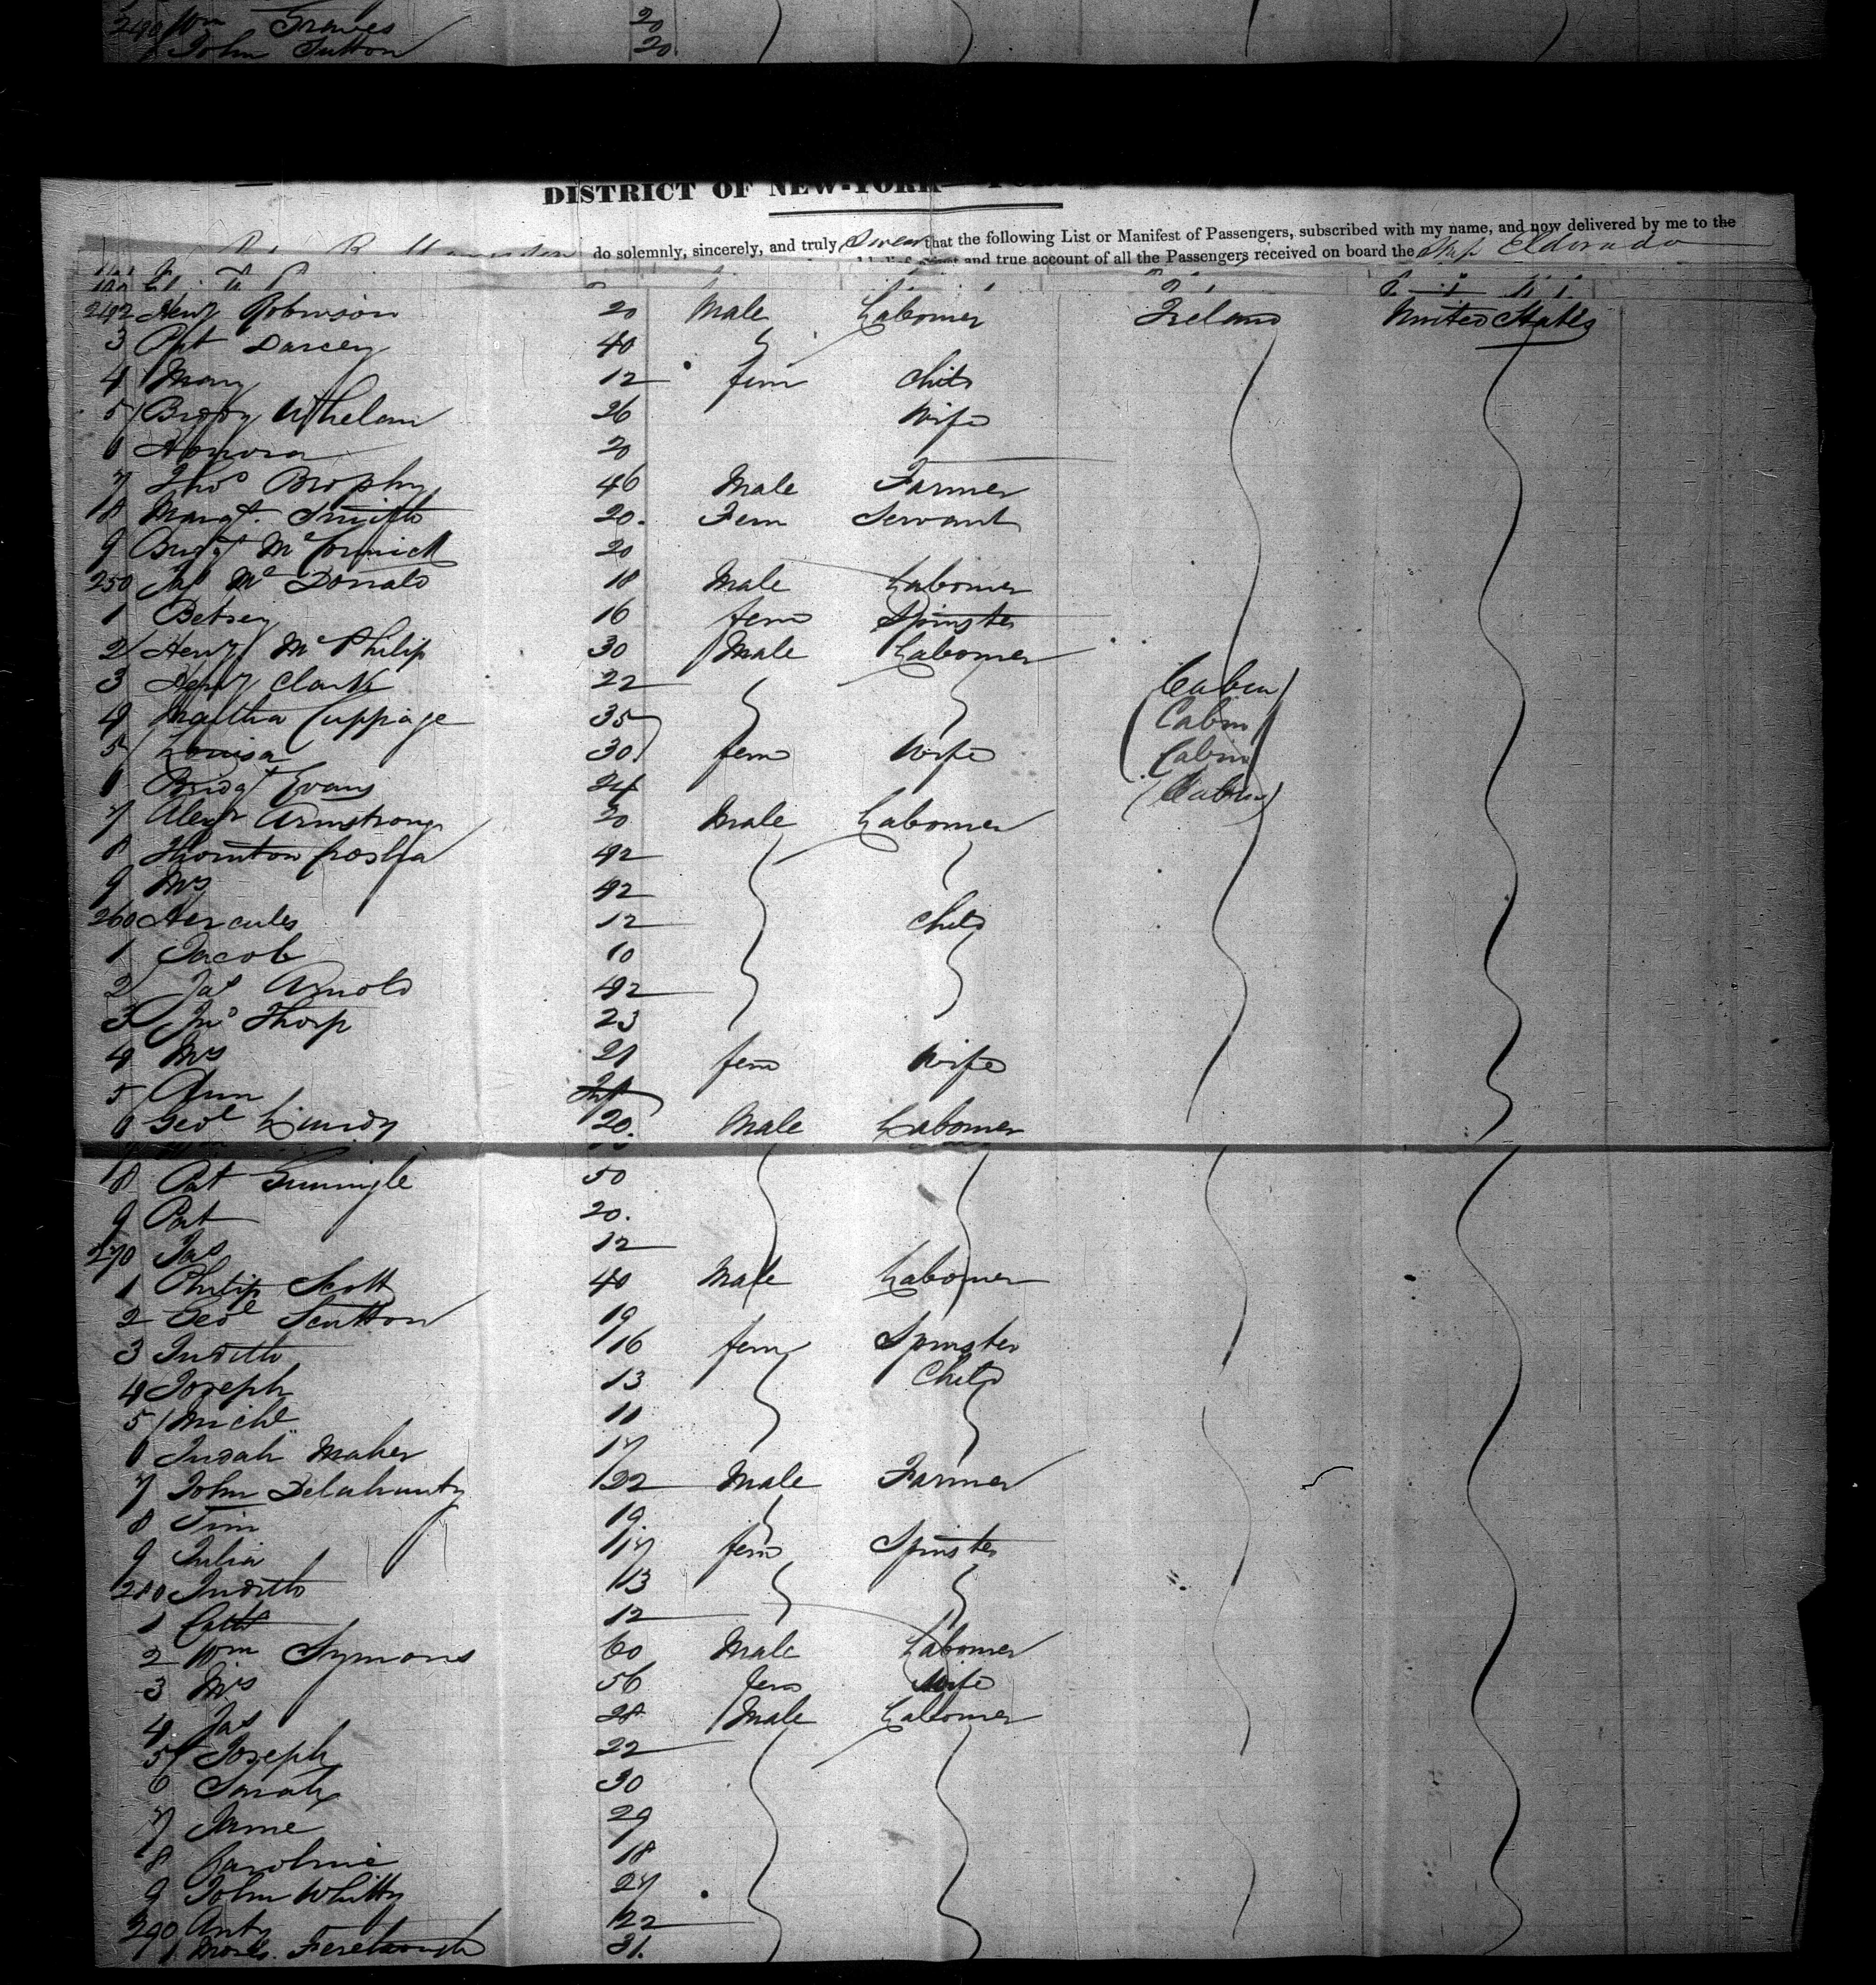 240 Wm Graves 20
1 John Sutton 20
DISTRICT OF NEW-YORK
do solemnly, sincerely, and truly Swear that the following List or Manifest of Passengers, subscribed with my name, and now delivered by me to the
and true account of all the Passengers received on board the Ship Eldorado
242 Henry Robinson 20 Male Labourer Ireland United States
3 Pat Darcey 40
4 Mary 12 fem child
5 Biddy Whelan 26 Wife
6 Honora 20
7 Thos Brophy 46 Male Farmer
8 Margt. Smith 20. Fem Servant
9 Bridgt McCormick 20
250 Jas McDonald 18 Male Labourer
1 Betsey 16 fem Spinster
2 Henry McPhilip 30 Male Labourer
3 Henry Clark 22 Cabin
4 Martha Cuppage 35 Cabin
5 Louisa 30 fem Wife Cabin
6 Bridgt Evans 24 Cabin
7 Alexr Armstrong 20 Male Labourer
8 Thornton 42
9 Mrs 42
260 Hercules 12 child
1 Jacob 10
2 Jas Arnold 42
3 Jno Thorp 23
4 Mrs 21 fem Wife
5 Ann Inf
6 Geo 20. Male Labourer
8 Pat 50
9 Pat 20.
270 Jas 12
1 Philip Scott 40 Male Labourer
2 Geo Scutton 19
3 Judith 16 fem Spinster
4 Joseph 13 Child
5 Michl 11
6 Judah Maher 17
7 John Delahunty 22 Male Farmer
8 Tim 19.
9 Julia 17 fem Spinster
280 Judith 13
1 Cath 12
2 Wm Symons 60 Male Labourer
3 Mrs 56 fem Wife
4 Jas 28 Male Labourer
5 Joseph 22
6 Sarah 30
7 Jane 29
8 Caroline 18
9 John Whitty 27
290 Anty 22
1 31.